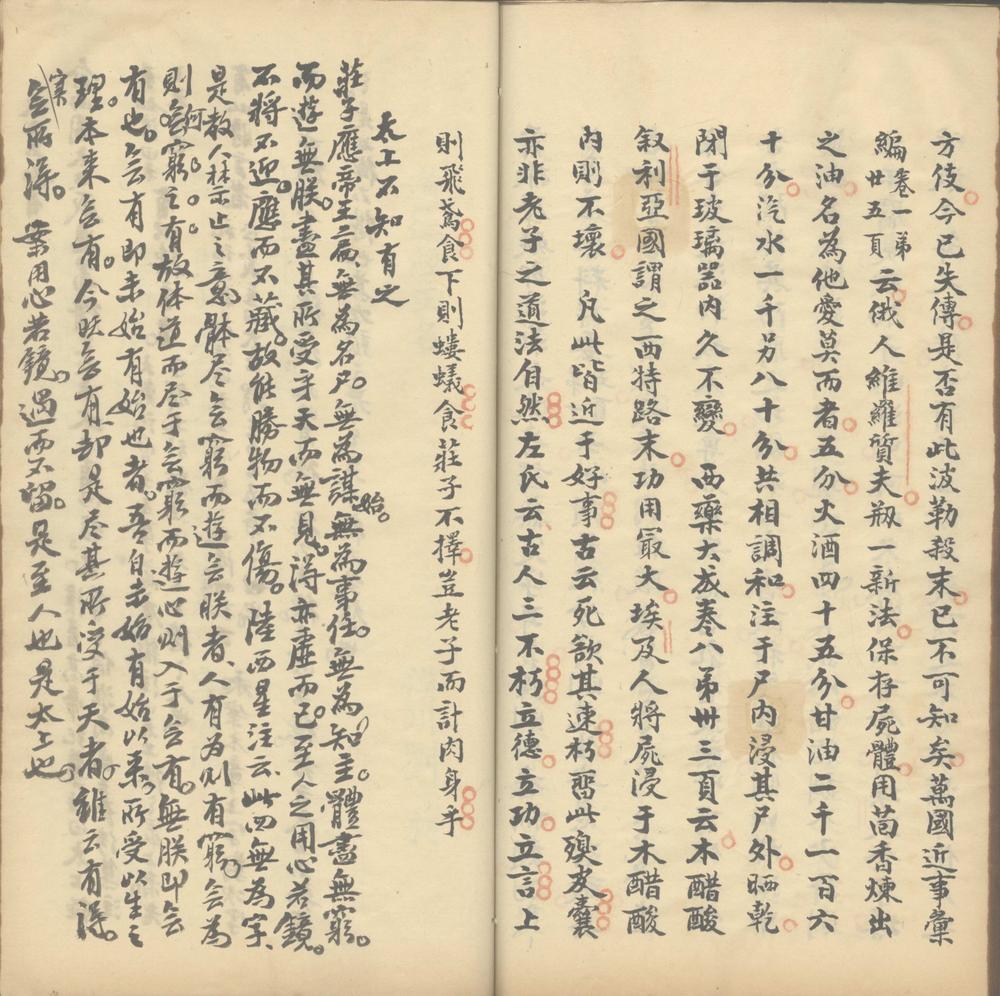 方伎今已失傳是否有此波勒殺末已不可知矣萬國近事彙
編卷一第廿五頁云俄人維羅質夫剏一新法保存屍體用茴香煉出
之油名為他愛莫而者五分火酒四十五分甘油二千一百六
十分汽水一千另八十分共相調和注于尸內浸其尸外晒乾
閉于玻璃器內久不變 西藥大成卷八第卅三頁云木醋酸
叙利亞國謂之西特路末功用最大埃及人將屍浸于木醋酸
內則不壞 凡此皆近于好事古云死欲其速朽留此臭皮囊
亦非老子之道法自然左氏云古人三不朽立德立功立言上
則飛鳶食下則螻蟻食莊子不擇豈老子而計肉身乎
太上不知有之
莊子應帝王篇無為名尸無為謀始無為事任無為知主體盡無窮
而遊無朕盡其所受乎天而無見得亦虛而已至人之用心若鏡
不將不迎應而不藏故能勝物而不傷陸西星注云此四無為字
是教人禁止之意體尽無窮而遊無朕者人有為則有窮無為
則何窮之有故体道而尽于無窮而遊心則入于無有無朕即無
有也無有即未始有始也者吾自未始有始以來所受以生之
理本來無有今也無有却是尽其所受于天者雖云有得
實無所得 業用心若鏡過而不留是至人也是太上也